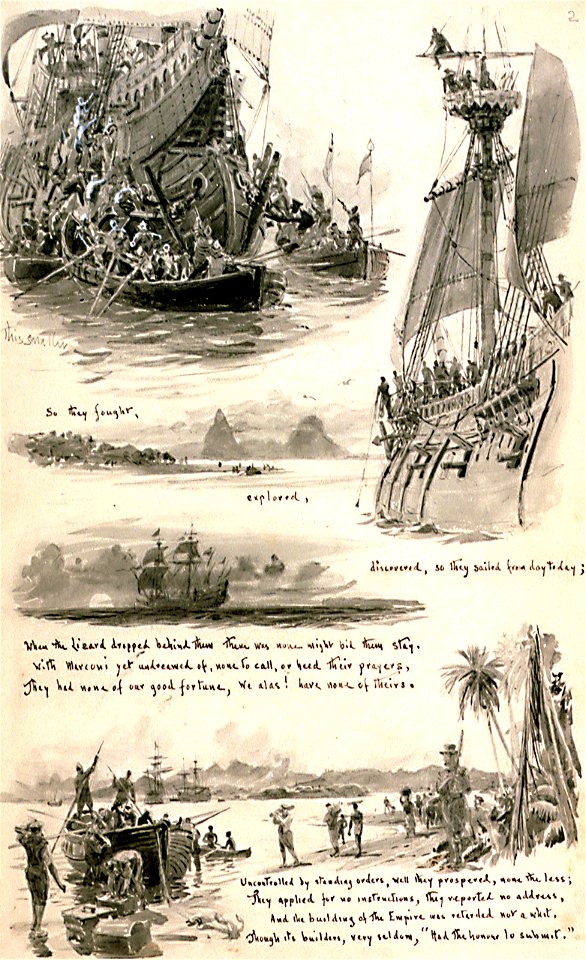 2
this smaller
So they fought,
explored,
discovered, so they sailed from day to day;
When the Lizard dropped behind them there was none might bid them stay.
With Marconi yet undreamed of, none to call, or heed their prayers,
They had none of our good fortune, we alas! have none of theirs.
Uncontrolled by standing orders, well they prospered, none the less;
They applied for no instructions, they reported no address,
And the building of the Empire was retarded not a whit.
Though its builders, very seldom, "Had the honour to submit."